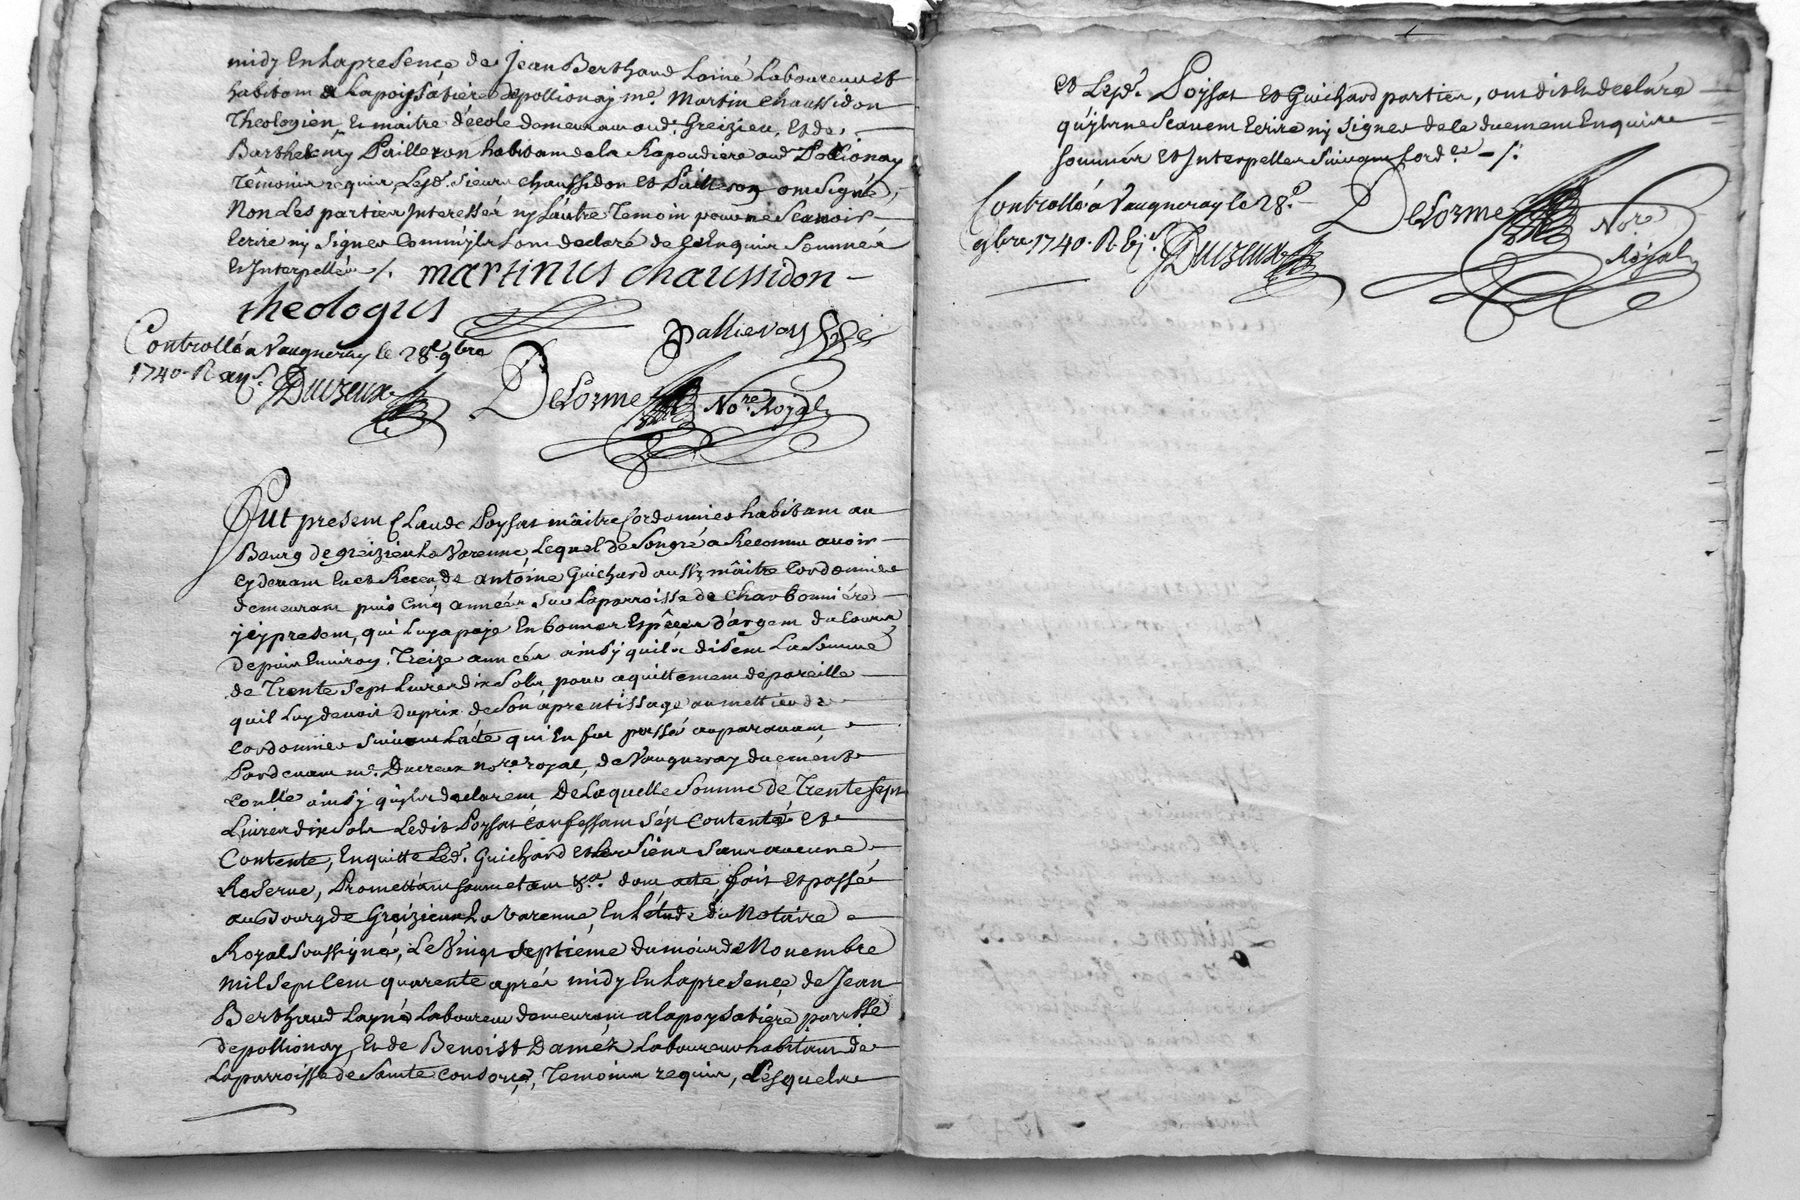 midy En la presence de Jean Berthaud Lainé Laboureur et
habitant a Lapoysatiere de pollionay me. Martin chaussidon
Theologien, Et maitre d'école demeurant aud. Greizieu, Et de
Barthelemy Pailleron habitant de la Rapoudiere aud. Pollionay
Témoins requis, Lesd. sieurs chaussidon et Pailleron ont signé,
Non Les parties Interessés ny L'autre Temoin pour ne Scavoir
Ecrire ny Signer Comm'jls L'ont declaré de ce Enquis Sommés
Et Interpellés /. martinus chaussidon
theologus
Pallieron
Controllé a Vaugneray le 28e. 9bre
1740. R. Ducreux
Delorme Nore. Royal
Fut present Claude Poyssat mâitre Cordonnier habitant au
Bourg de greizieu La Varenne, Lequel de Son gré a Reconnu avoir
Cy devant Eu et Receu de antoine Guichard aussy mâitre Cordonnier
demeurant puis Cinq années Sur La parroisse de Charbonniéres
jcy present, qui Luy a paje En bonnes Espêces d'argent du Cours,
depuis Environ Treize années ainsy quils disent La Somme
de Trente Sept Livres dix Sols pour aquittement de pareille
quil Luy devoit du prix de Son aprentissage au mettier de
Cordonnier Suivant L'acte qui En fut passé auparavant
Pardevant me. Ducreux nore. royal, de Vaugneray duement
Conllé ainsy qu'jls declarent De Laquelle Somme de Trente Sept
Livres dix Sols Ledit Poyssat Confessant S'est Contenté et
Contente, En quitte Led. Guichard et les Siens Sans aucune
Reserve, Promettant soumetant &a. dont acte, fait Et passé
au Bourg de Greizieu La Varenne En L'étude du Notaire
Royal Soussigné, Le Vingt Septième du mois de Novembre
Mil Sept Cent quarente aprés midy En La presence de Jean
Berthaud Layné Laboureur demeurant a la poysatiere parrsse
de pollionay, Et de Benoist Daméz Laboureur habitant de
La parroisse de Sainte Consorce, Temoins requis, Lesquels
et Lesd. Poyssat et Guichard parties, ont dit Et declaré
qu'jls ne Scavent Ecrire ny Signer de ce duement Enquis
Sommés et Interpellés Suivant L'orde. /.
Controllé a Vaugneray le 28e.
9bre 1740. R. Ducreux
Delorme Nore.
Royal